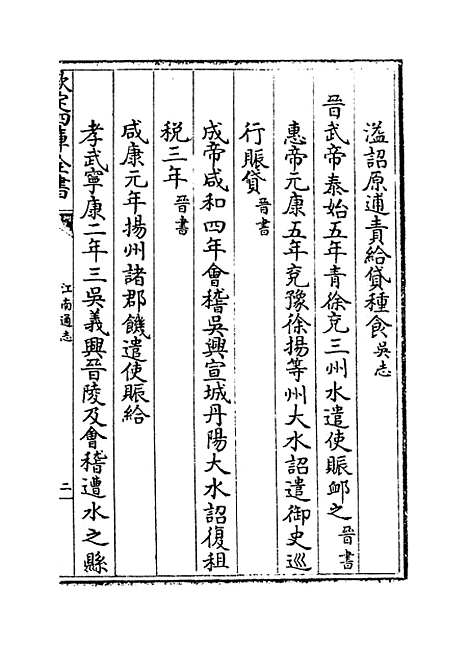 溢詔原逋責給貸種食吳志
晉武帝泰始五年青徐兗三州水遣使賑䘏之晉書
惠帝元康五年兗豫徐揚等州大水詔遣御史巡
行賑貸晉書
成帝咸和四年會稽吳興宣城丹陽大水詔復租
税三年晉書
咸康元年揚州諸郡饑遣使賑給
孝武寧康二年三吳義興晉陵及會稽遭水之縣
欽定四庫全書
江南通志
二